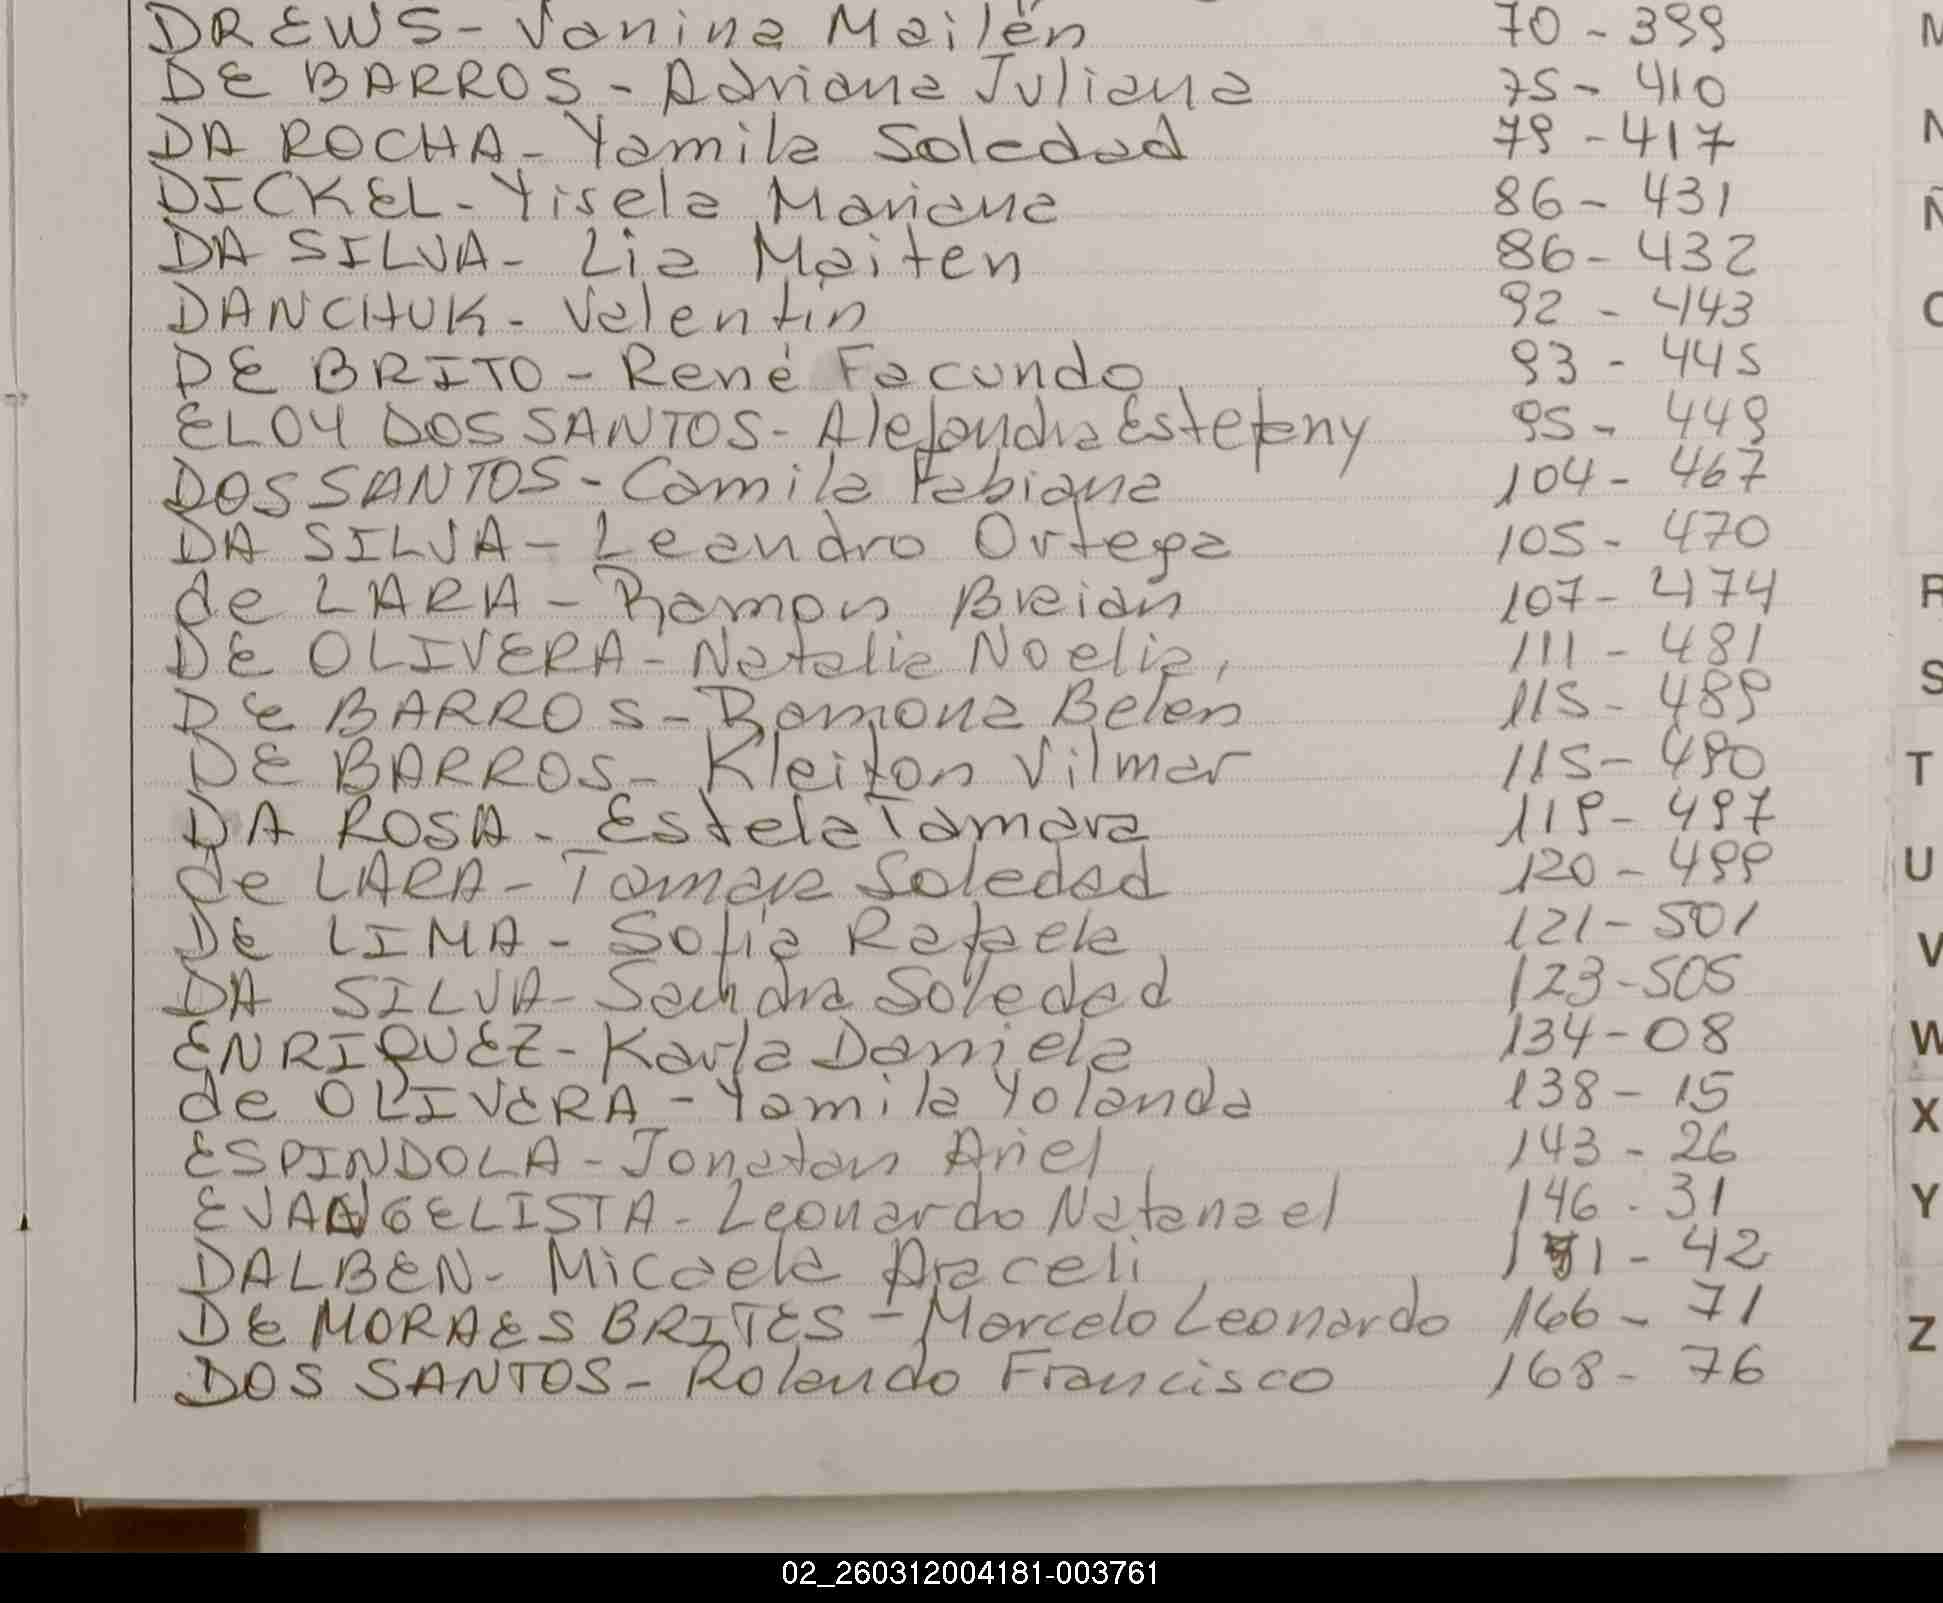 DREWS - Vanina Mailén 70 - 399
DE BARROS - Adriana Juliana 75 - 410
DA ROCHA - Yamila Soledad 79 - 417
DICKEL - Yisela Mariana 86 - 431
DA SILVA - Lia Maiten 86 - 432
DANCHUK - Valentin 92 - 443
DE BRITO - René Facundo 93 - 445
ELOY DOS SANTOS - Alejandra Estefany 95 - 449
DOS SANTOS - Camila Fabiana 104 - 467
DA SILVA - Leandro Ortega 105 - 470
de LARA - Ramon Braian 107 - 474
DE OLIVERA - Natalia Noelia, 111 - 481
DE BARROS - Ramona Belén 115 - 489
DE BARROS - Kleiton Vilmar 115 - 490
DA ROSA - Estela Tamara 119 - 497
de LARA - Tamara Soledad 120 - 499
DE LIMA - Sofía Rafaela 121 - 501
DA SILVA - Sandra Soledad 123 - 505
ENRIQUEZ - Karla Daniela 134 - 08
de OLIVERA - Yamila Yolanda 138 - 15
ESPINDOLA - Jonatan Ariel 143 - 26
EVANGELISTA - Leonardo Natanael 146 - 31
DALBEN - Micaela Araceli - 42
DE MORAES BRITES - Marcelo Leonardo 166 - 71
DOS SANTOS - Rolando Francisco 168 - 76
R
S
T
U
V
W
X
Y
Z
02_260312004181-003761